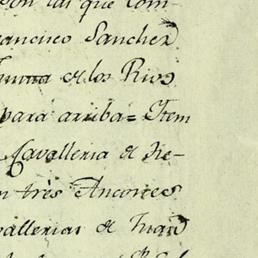 con tal que com-
rancisco Sanchez
de los Rios
para arriba = Item
Cavalleria de Je-
n tres Ancores
vallerias de Juan